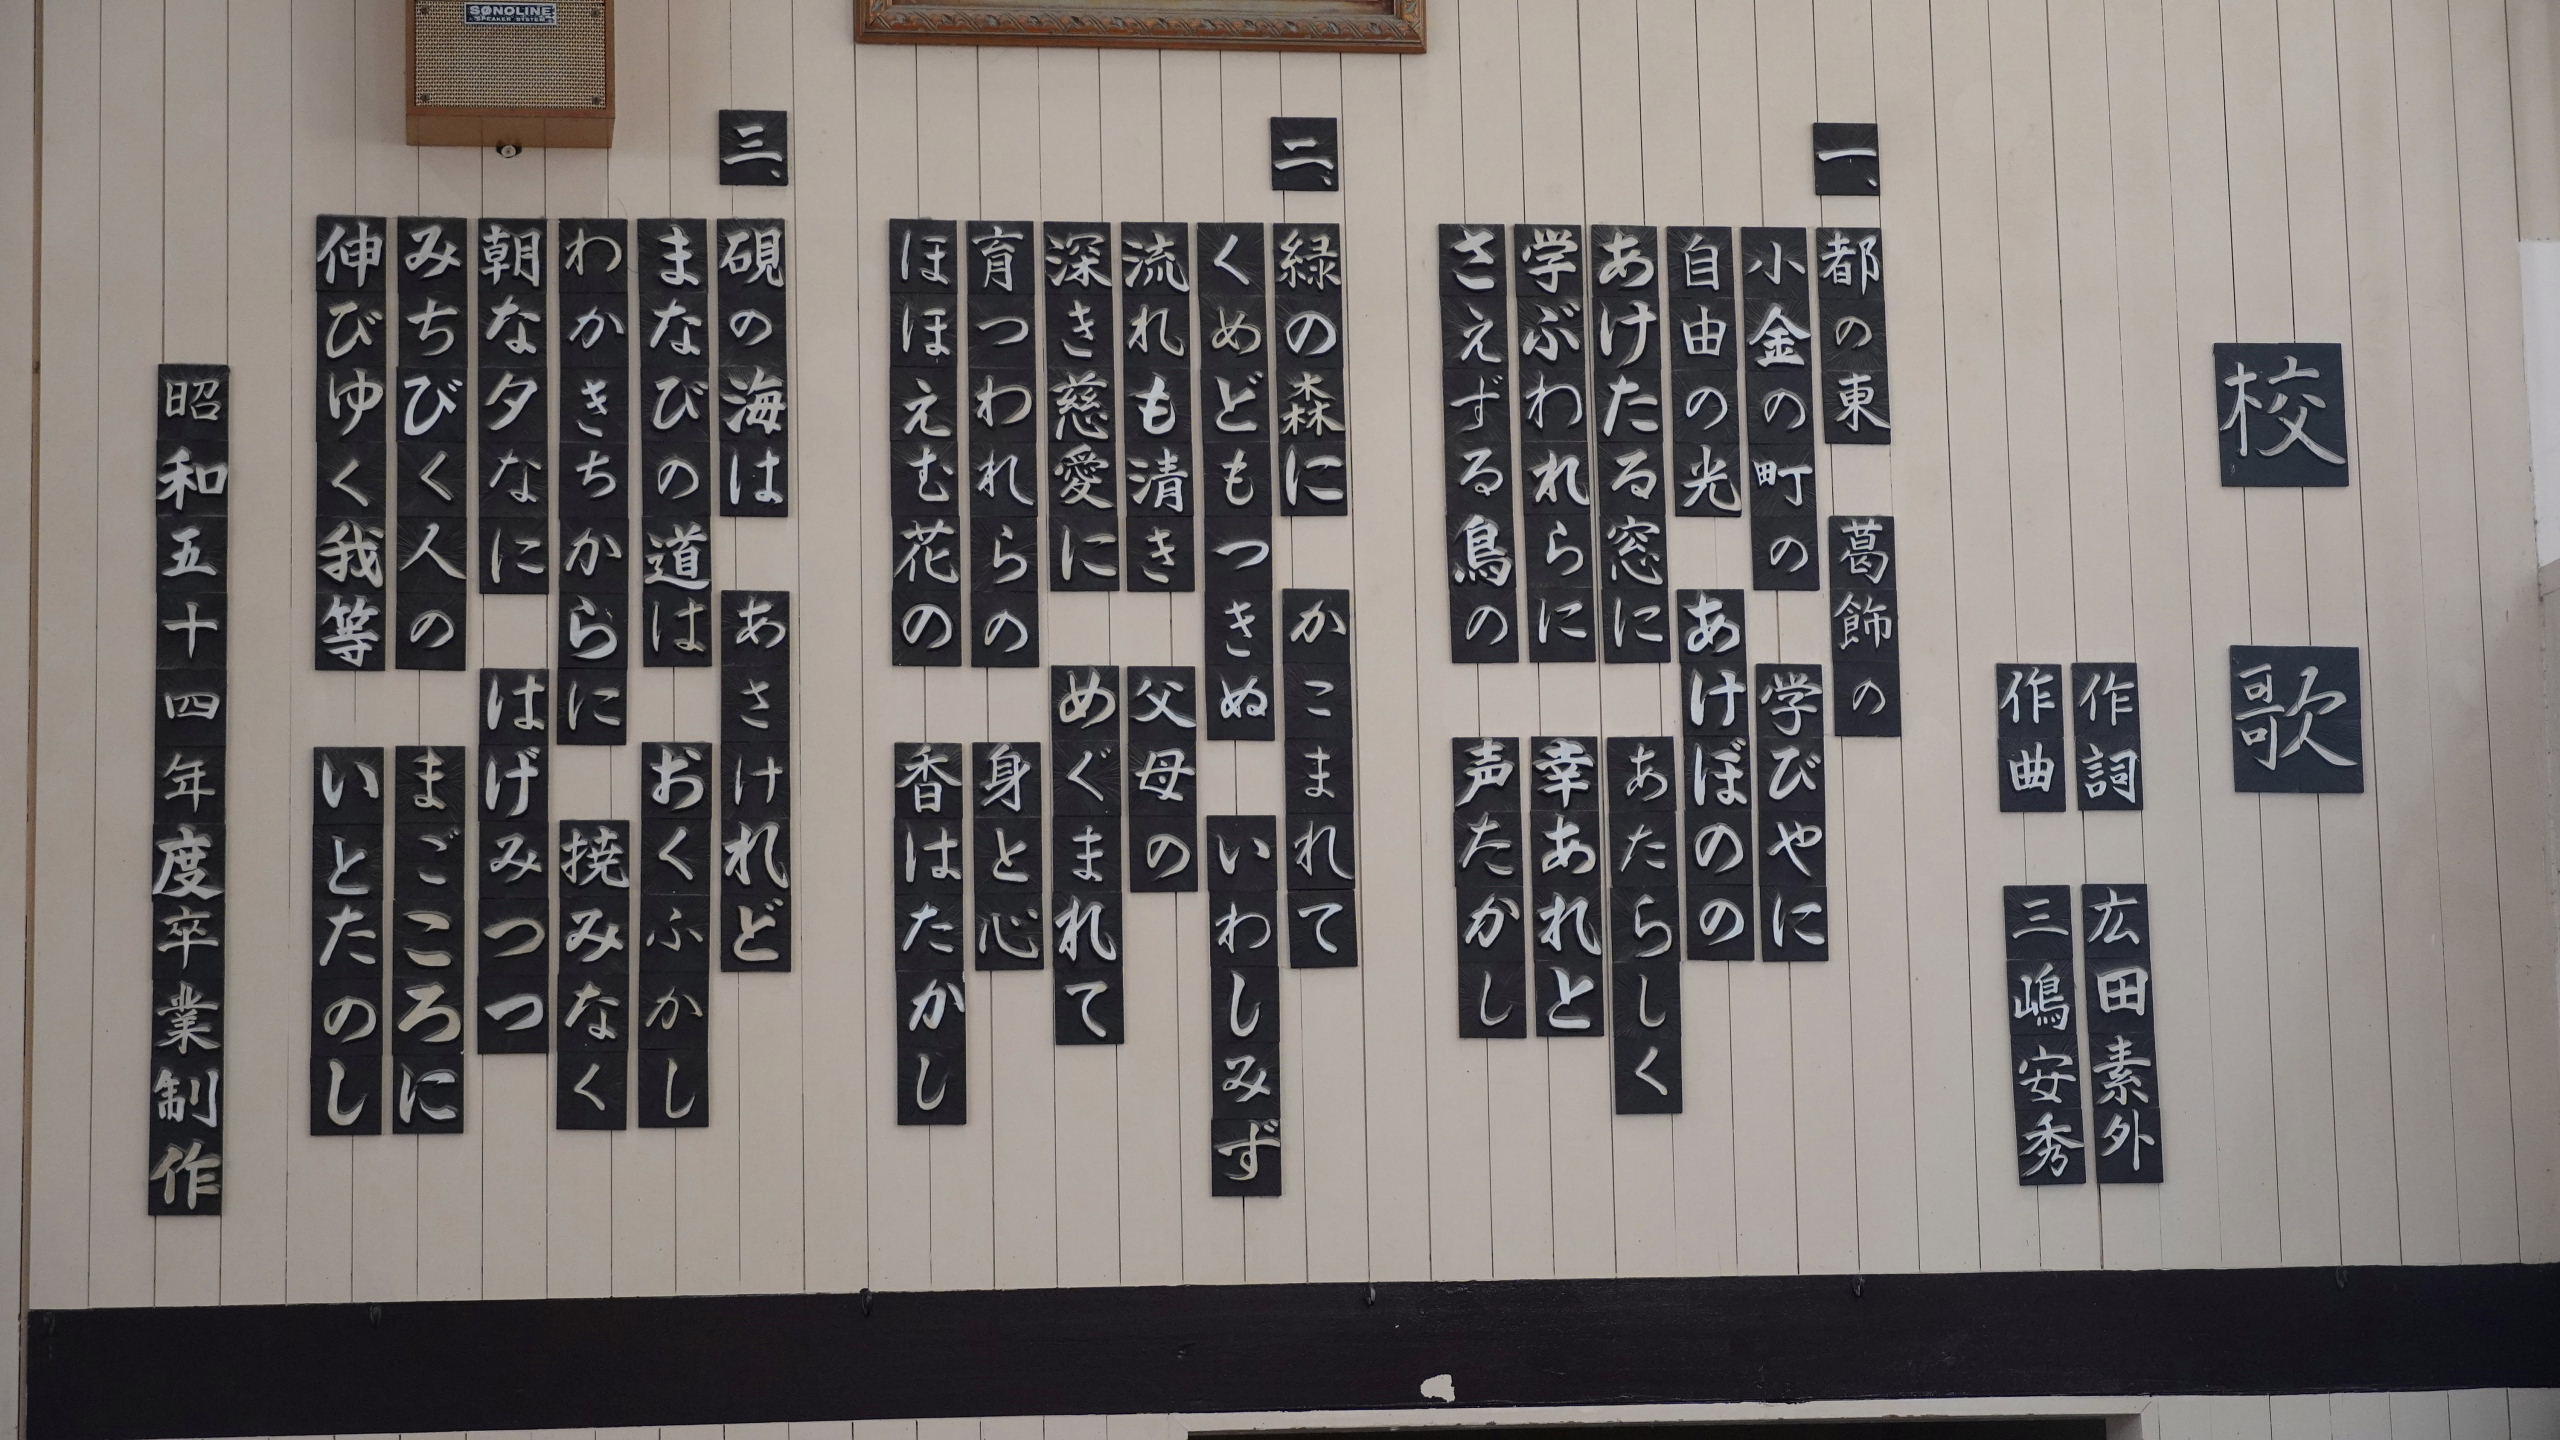 校歌
作詞 広田素外
作曲 三嶋安秀
一、
都の東 葛飾の
小金の町の 学びやに
自由の光 あけぼのの
あけたる窓に あたらしく
学ぶわれらに 幸あれと
さえずる鳥の 声たかし
二、
緑の森に かこまれて
くめどもつきぬ いわしみず
流れも清き 父母の
深き慈愛に めぐまれて
育つわれらの 身と心
ほほえむ花の 香はたかし
三、
硯の海は あさけれど
まなびの道は おくふかし
わかきちからに 撓みなく
朝な夕なに はげみつつ
みちびく人の まごころに
伸びゆく我等 いとたのし
昭和五十四年度卒業制作
SONOLINE
SPEAKER SYSTEM